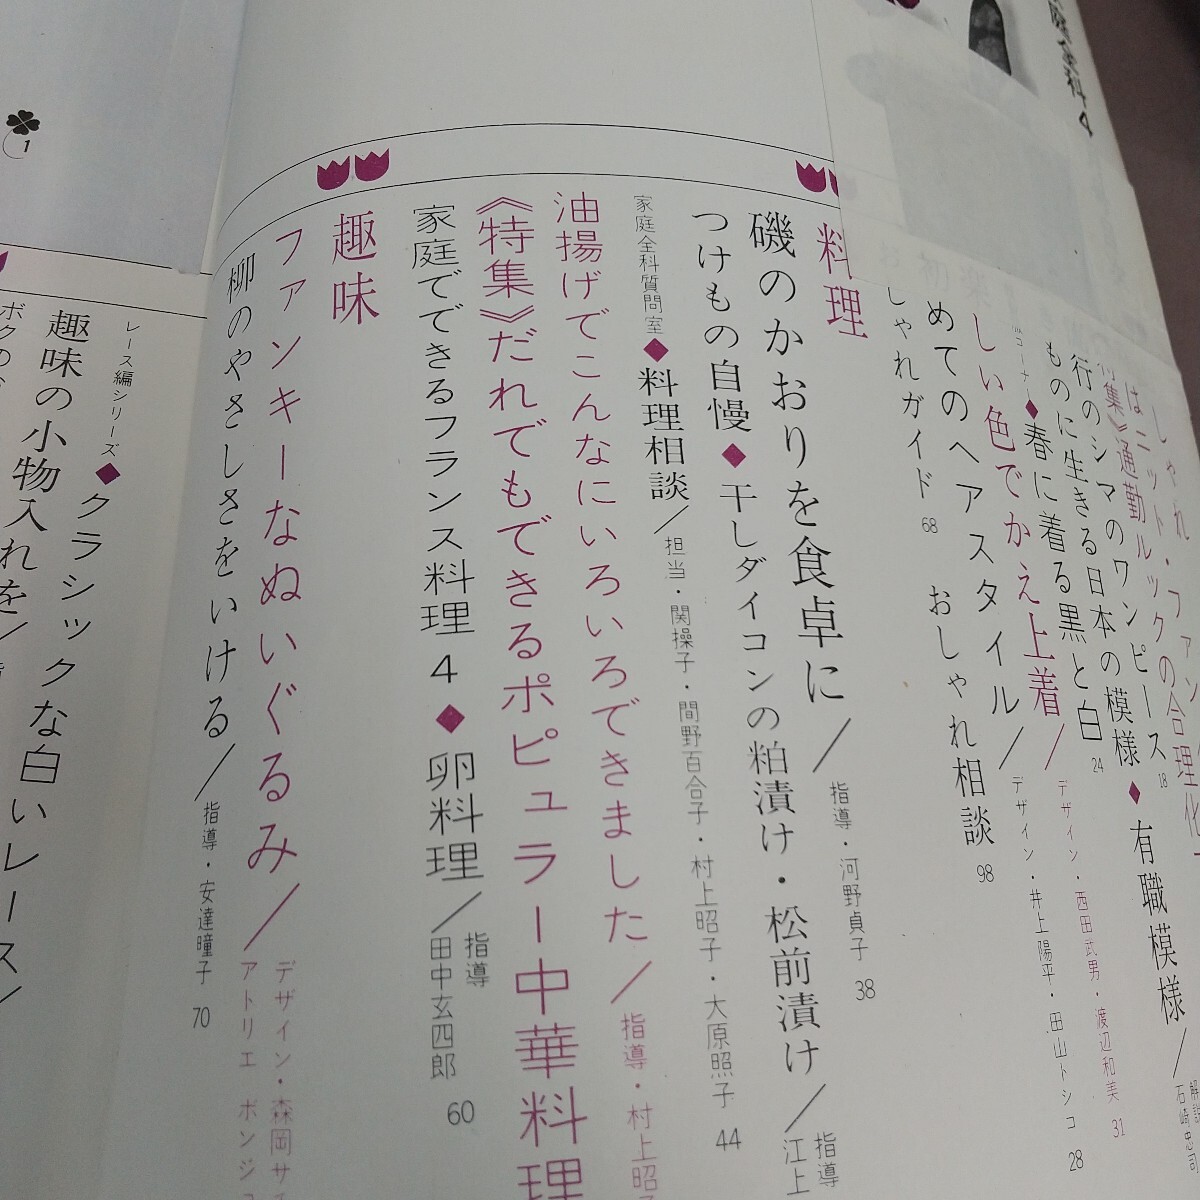 庭全科 4
しゃれ・ファ
はニット・ルックの合理化
集》通勤
行のシマのワンピース 18
ものに生きる日本の模様◆有職模様／解説 石崎忠司
コーナー◆春に着る黒と白 24
しい色でかえ上着／デザイン・西田武男・渡辺和美 31
めてのヘアスタイル／デザイン・井上陽平・田山トシコ 28
しゃれガイド 68 おしゃれ相談 98
料理
磯のかおりを食卓に／指導・河野貞子 38
つけもの自慢◆干しダイコンの粕漬け・松前漬け／指導 江上
家庭全科質問室◆料理相談／担当・関操子・間野百合子・村上昭子・大原照子 44
油揚げでこんなにいろいろできました／指導・村上昭
《特集》だれでもできるポピュラー中華料理
家庭でできるフランス料理4◆卵料理／指導 田中玄四郎 60
趣味
ファンキーなぬいぐるみ／デザイン・森岡サ アトリエ ボンジ
柳のやさしさをいける／指導・安達曈子 70
1
レース編シリーズ◆クラシックな白いレース／
趣味の小物入れを／
ボクの